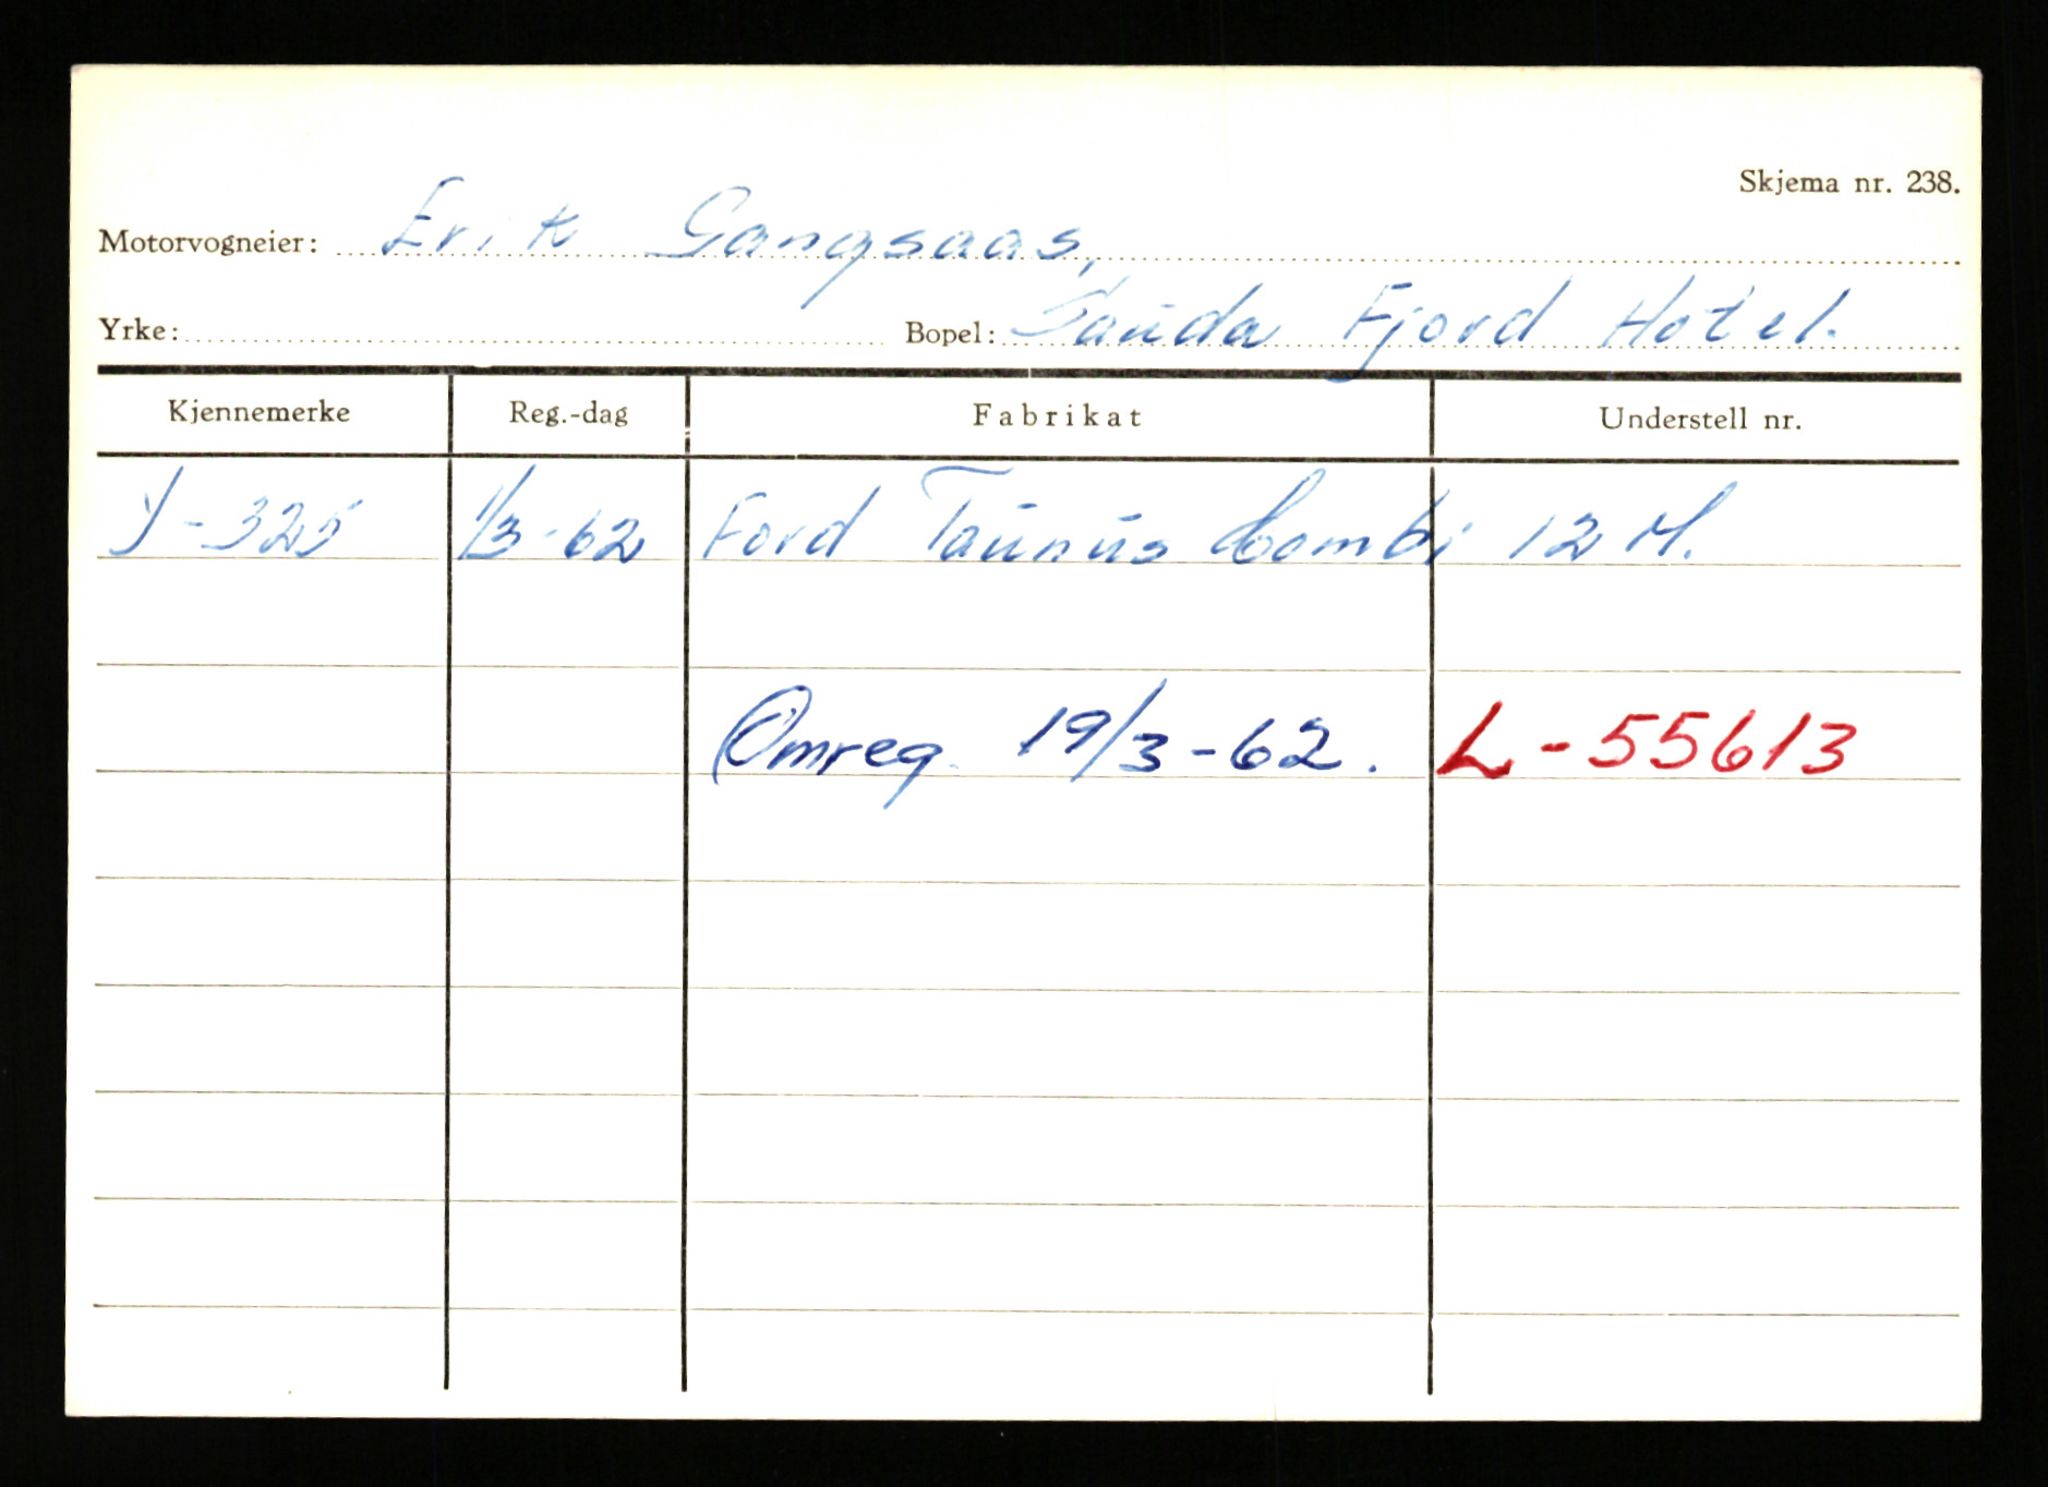 Skjema nr. 238.
Motorvogneier: Erik Gangsaas,
Yrke: Bopel: Sauda Fjord Hotel.
Kjennemerke Reg.-dag Fabrikat Understell nr.
Y-325 1/3-62 Ford Taunus Combi 12 M.
Omreg. 19/3-62. L-55613